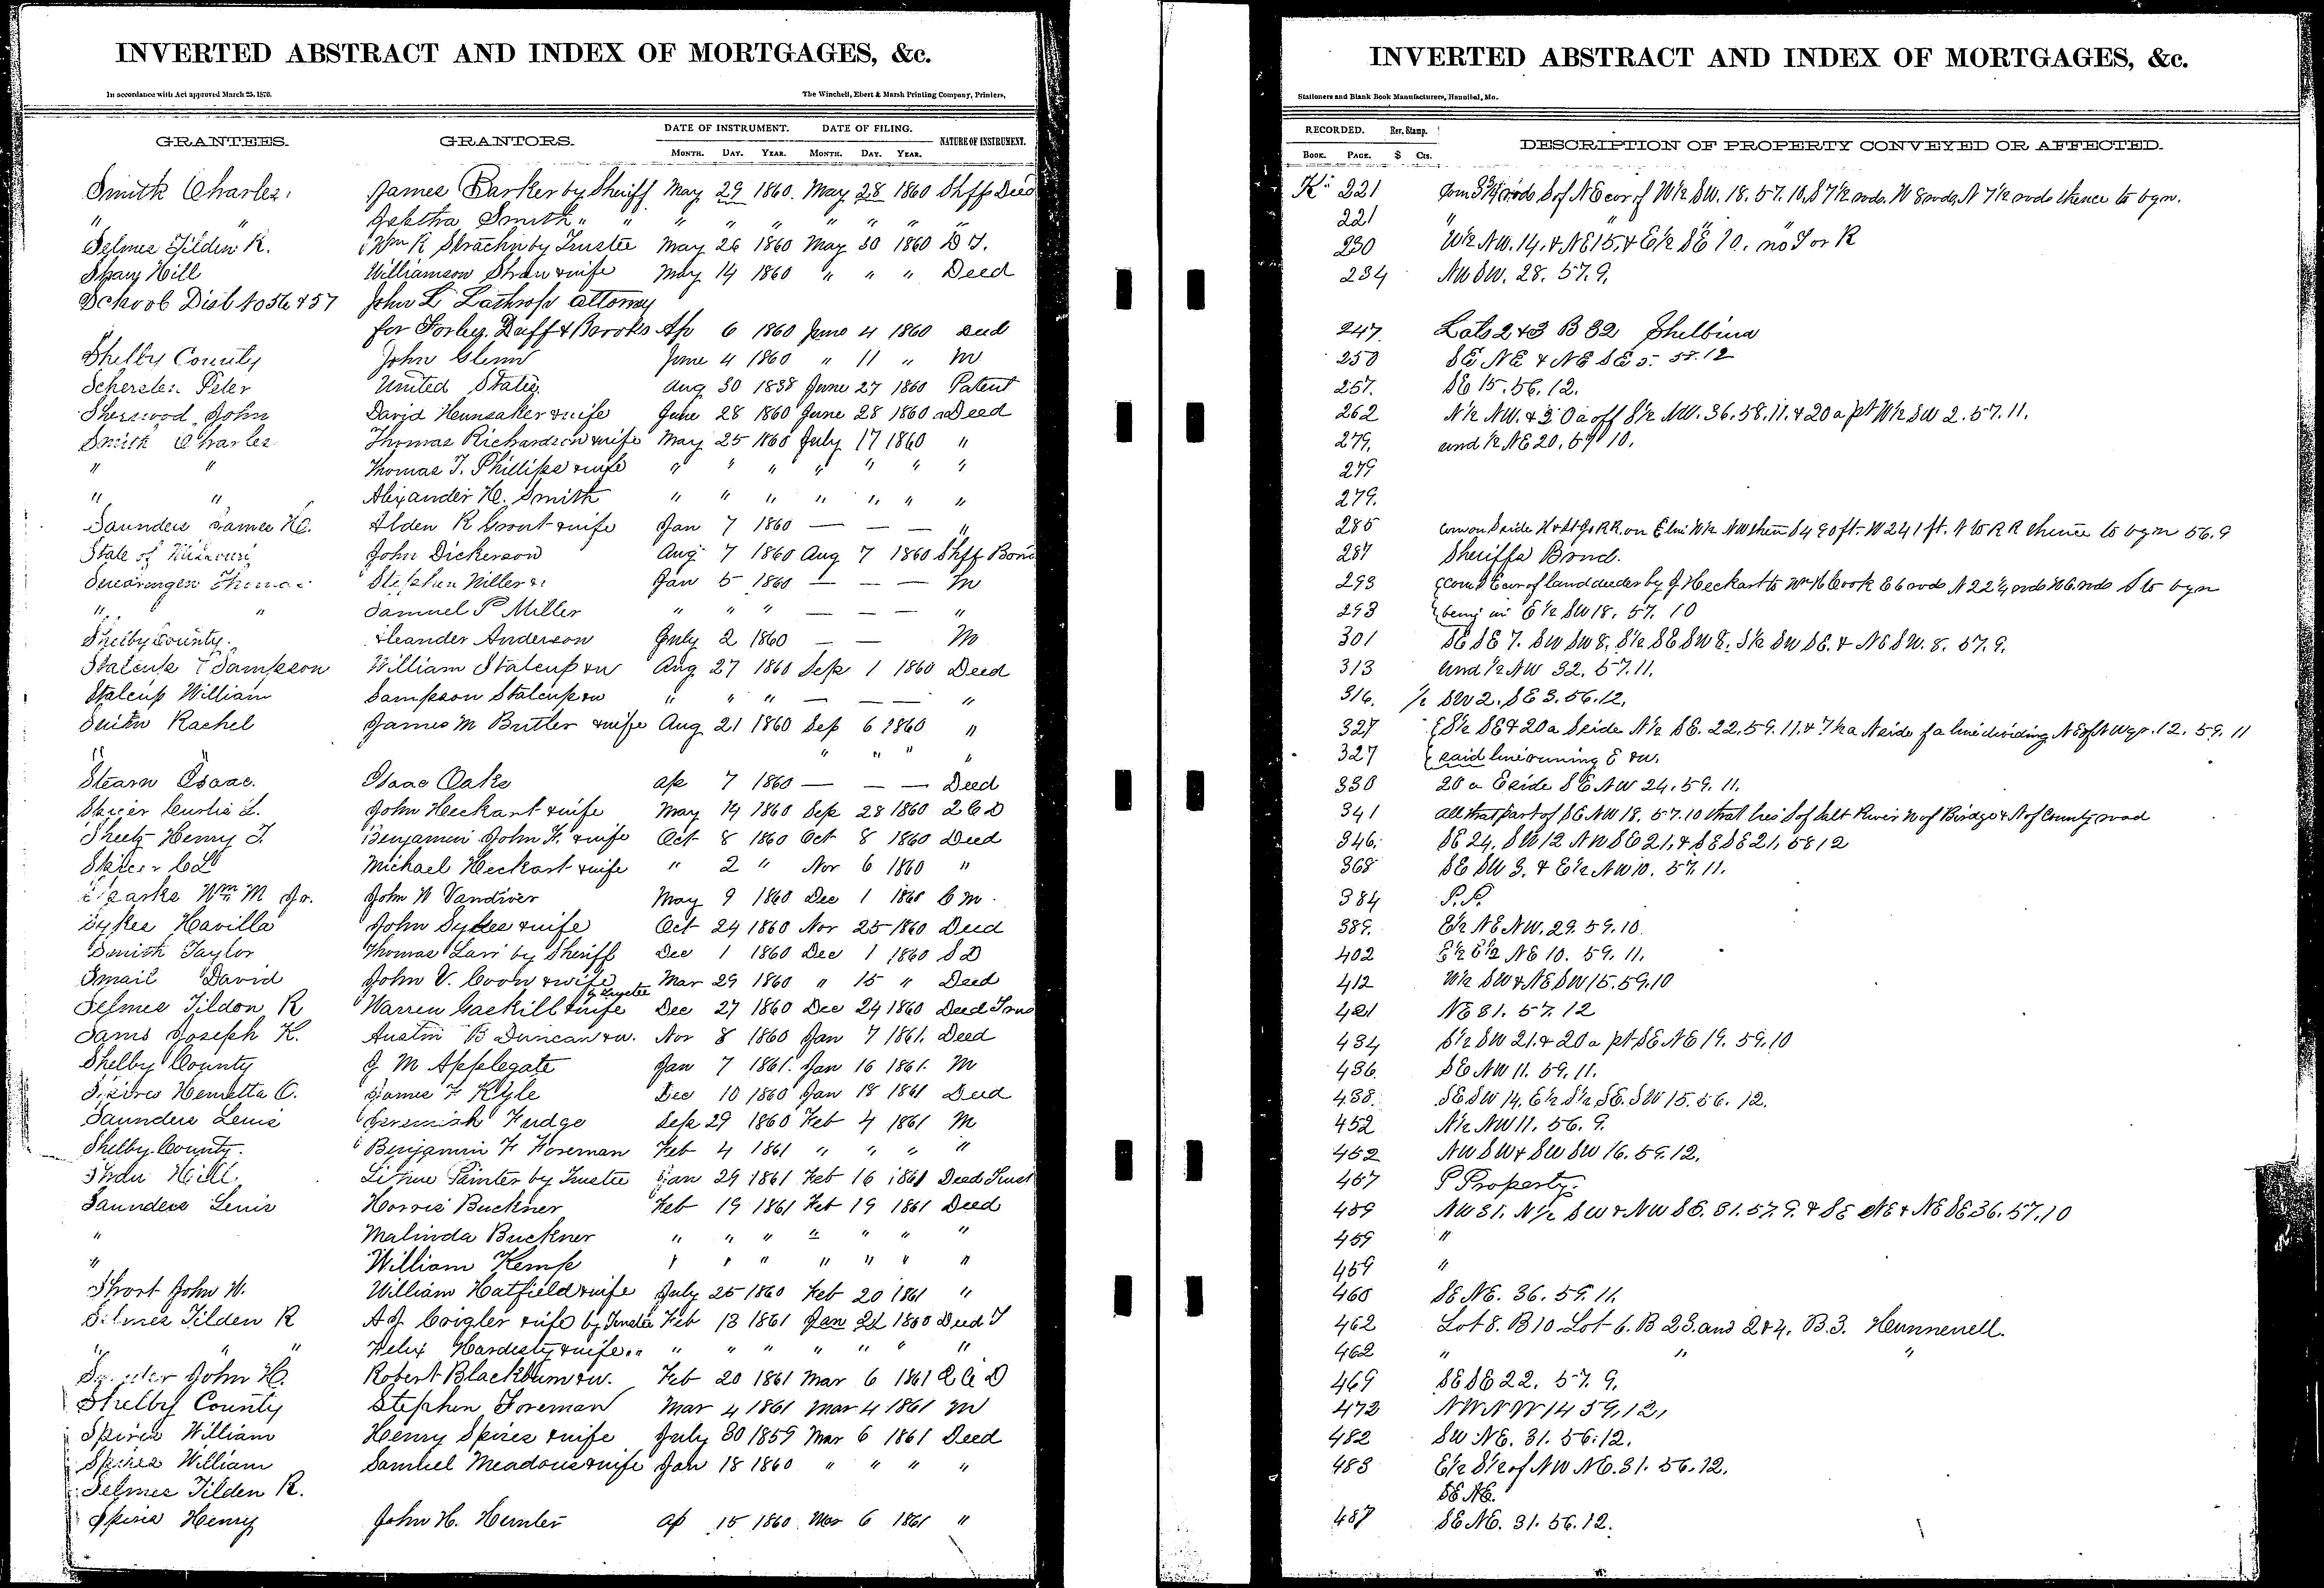 INVERTED ABSTRACT AND INDEX OF MORTGAGES, &c.
In accordance with Act approved March 25, 1870. The Winchell, Ebert & Marsh Printing Company, Printers,
DATE OF INSTRUMENT. DATE OF FILING.
GRANTEES. GRANTORS. NATURE OF INSTRUMENT.
MONTH. DAY. YEAR. MONTH. DAY. YEAR.
Smith Charles. James Parker by Sheriff May 29 1860. May 28 1860 Shff Deed
" " Smith " " " " " " " "
Selmes Tilden R. Wm R Strachn by Trustee May 26 1860 May 30 1860 D T.
Hill Williamson Straw & wife May 14 1860 " " " Deed
School Dist No 56 & 57 John L Lathrop attorney
for Forley, Duff & Brooks Ap 6 1860 June 4 1860 Deed
Shelby County John Glenn June 4 1860 " 11 " M
Peter United States Aug 30 1838 June 27 1860 Patent
Sherwood John David Hunsaker & wife June 28 1860 June 28 1860 Deed
Smith Charles Thomas Richardson & wife May 25 1860 July 17 1860 "
" " Thomas T. Phillips & wife " " " " " " "
" " Alexander H. Smith " " " " " " "
Saunders James H. Alden R Grout & wife Jan 7 1860 — — — "
State of Missouri John Dickerson Aug 7 1860 Aug 7 1860 Shff Bond
Swearingen Thomas Stephen Miller Jan 5 1860 — — — M
" " Samuel P Miller " " " — — — "
Shelby County. Leander Anderson July 2 1860 — — M
Stalcup Sampson William Stalcup & w Aug 27 1860 Sep 1 1860 Deed
Stalcup William Sampson Stalcup & w " " " — — — "
Rachel James M Butler & wife Aug 21 1860 Sep 6 1860 "
" " " " "
Stearn Isaac. Isaac Oaks Ap 7 1860 — — — Deed
Spicer Curtis L. John Heckart & wife May 19 1860 Sep 28 1860 2 C D
Sheetz Henry T. Benjamin John H. & wife Oct 8 1860 Oct 8 1860 Deed
Spicer C L Michael Heckart & wife " 2 " Nov 6 1860 "
Sparks Wm M Jr. John W Vandiver May 9 1860 Dec 1 1860 C M.
Sykes Havilla John Sykes & wife Oct 24 1860 Nov 25 1860 Deed
Smith Taylor Thomas Larr by Sheriff Dec 1 1860 Dec 1 1860 S D
Smail David John V. Coon & wife Mar 29 1860 " 15 " Deed
by Trustee
Selmes Tildon R Warren Gaskill & wife Dec 27 1860 Dec 24 1860 Deed Trus
Sams Joseph K. Austin B Duncan & w. Nov 8 1860 Jan 7 1861. Deed
Shelby County J M Applegate Jan 7 1861. Jan 16 1861. M
Spires Henrietta C. James F Kyle Dec 10 1860 Jan 18 1861 Deed
Saunders Lewis Jeremiah Fudge Sep 29 1860 Feb 4 1861 M
Shelby County. Benjamin F Foreman Feb 4 1861 " " " "
Shaw Hill. Painter by Trustee Jan 29 1861 Feb 16 1861 Deed Trust
Saunders Lewis Horris Buckner Feb 19 1861 Feb 19 1861 Deed
" Malinda Buckner " " " " " " "
" William Kemp " " " " " " "
Short John W. William Hatfield & wife July 25 1860 Feb 20 1861 "
Selmes Tilden R A J. Coigler & wife by Trustee Feb 13 1861 Jan 22 1860 Deed T
" " " Felix Hardesty & wife " " " " " " " "
John H. Robert Blackburn & w. Feb 20 1861 Mar 6 1861 Q C D
Shelby County Stephen Foreman Mar 4 1861 Mar 4 1861 M
Spires William Henry Spires & wife July 30 1859 Mar 6 1861 Deed
Spires William Samuel Meadows & wife Jan 18 1860 " " " "
Selmes Tilden R.
Spires Henry John H. Hunter Ap 15 1860 Mar 6 1861 "
INVERTED ABSTRACT AND INDEX OF MORTGAGES, &c.
Stationers and Blank Book Manufacturers, Hannibal, Mo.
RECORDED. Rev. Stamp.
DESCRIPTION OF PROPERTY CONVEYED OR AFFECTED.
Book. PAGE. $ Cts.
K 221 Com 53¼ rods S of NE cor of W½ SW. 18. 57. 10. S 7½ rods. W 8 rods, N 7½ rods thence to bgn.
221 " " "
230 W½ NW. 14, & NE 15, & E½ SE 10. no T or R
234 NW SW. 28. 57. 9.
247. Lots 2 & 3 B 32 Shelbina
250 SE NE & NE SE 5. 58. 12
257. SE 15. 56. 12.
262 N½ NW. & 30 a off S½ NW. 36. 58. 11. & 20 a pt W½ SW 2. 57. 11.
279. und ½ NE 20. 57 10.
279
279.
285 com on S side H & St Jo RR. on E line W½ NW then S 490 ft. W 241 ft. N to R R thence to bgn 56. 9
287 Sheriffs Bond.
293 Com S E cor of land deeded by J Heckart to Wm H Cook E 6 rods N 22½ rods W 6 rods S to bgn
293 being in E½ SW 18, 57. 10
301 SE SE 7. SW SW 8, S½ SE SW 8. S½ SW SE. & NE SW. 8. 57. 9.
313 und ½ NW 32. 57. 11.
316. ½ SW 2. SE 3. 56. 12.
327 S½ SE & 20 a S side N½ SE. 22. 59. 11. & 7½ a N side of a line dividing NE of NW qr. 12. 59. 11
327 said line running E & W.
330 20 a E side SE NW 24. 59. 11.
341 all that part of SE NW 18. 57. 10 that lies S of Salt River W of Bridge & N of County road
346. SE 24. SW 12 NW SE 21, & SE SE 21, 58 12
368 SE SW 3. & E½ NW 10. 57. 11.
384 P. P.
389. E½ NE NW. 29. 59. 10.
402 E½ E½ NE 10. 59. 11.
412 W½ SW & NE SW 15. 59. 10
421 NE 31. 57. 12
434 S½ SW 21. & 20 a pt SE NE 19. 59. 10
436. SE NW 11. 59. 11.
438. SE SW 14. E½ S½ SE. SW 15. 56. 12.
452 N½ NW 11. 56. 9.
452 NW SW & SW SW 16. 59. 12.
457 P Property.
459 NW 31. N½ SW & NW SE. 31. 57. 9. & SE NE & NE SE 36. 57. 10
459 "
459 "
460 SE NE. 36. 59. 11.
462 Lot 8. B 10 Lot 6. B 23. and 2 & 4. B. 3. Hunnewell.
462 " " "
469 SE SE 22. 57. 9.
472 NW NW 14 59, 12,
482 SW NE. 31. 56. 12.
483 E½ S½ of NW NE. 31. 56. 12.
SE NE.
487 SE NE. 31. 56. 12.